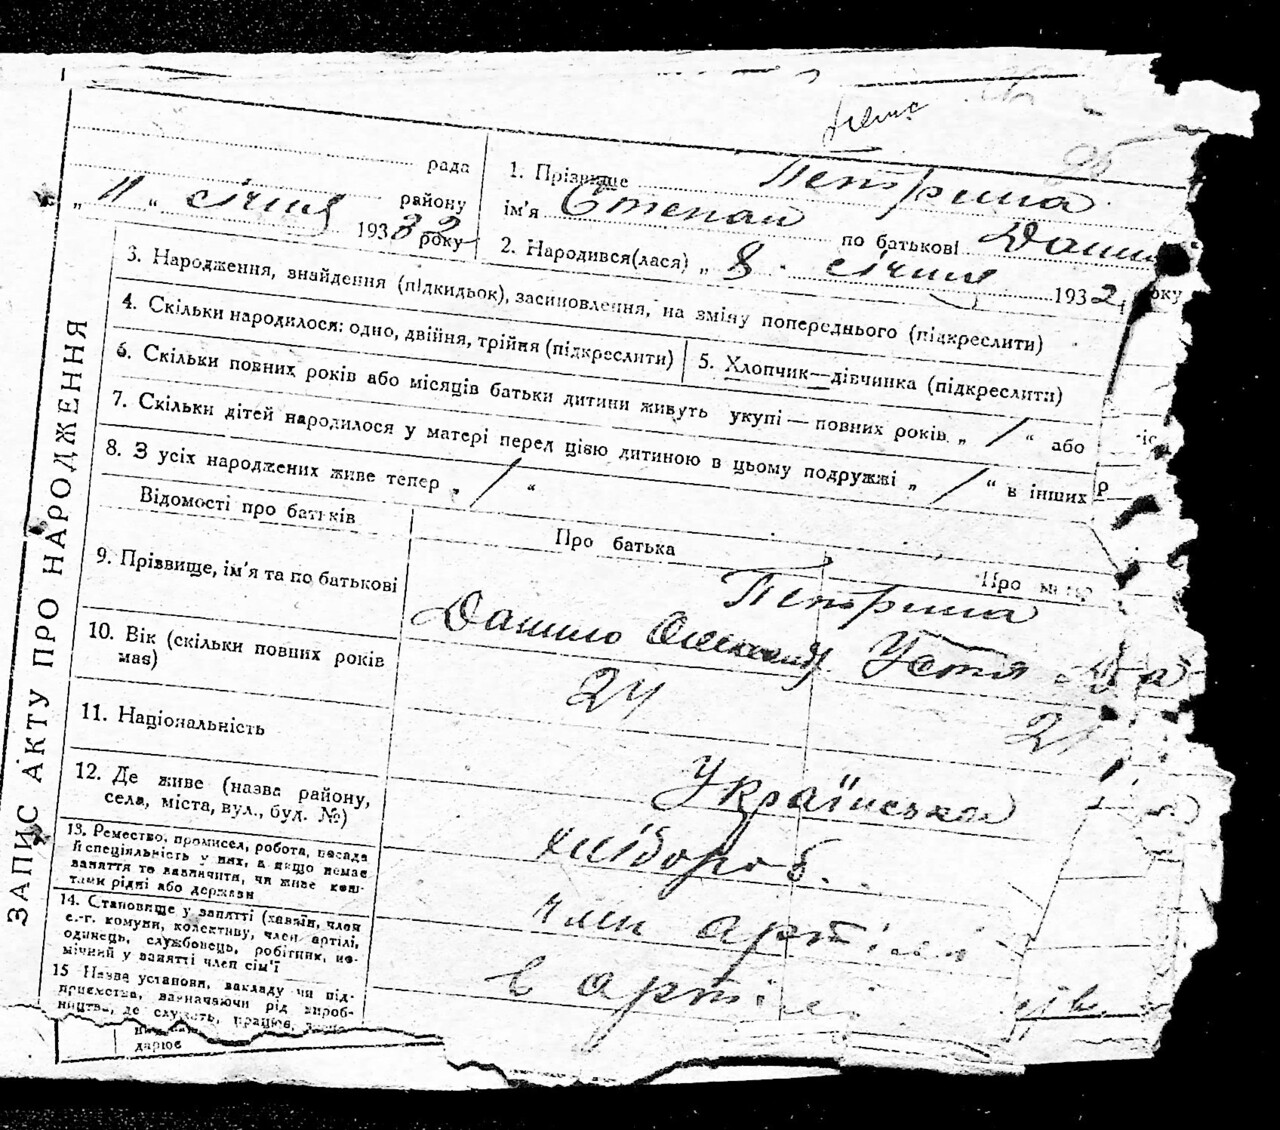 рада
району
„ 11 “ січня 1932 року
1. Прізвище Петрина
ім'я Степан по батькові Данил
2. Народився(лася) „ 8 " січня 1932 року
3. Народження, знайдення (підкидьок), засиновлення, на зміну попереднього (підкреслити)
4. Скільки народилося: одно, двійня, трійня (підкреслити)
5. Хлопчик—дівчинка (підкреслити)
6. Скільки повних років або місяців батьки дитини живуть укупі — повних років „ / “ або
7. Скільки дітей народилося у матері перед цією дитиною в цьому подружжі „ / “ в інших
8. З усіх народжених живе тепер „ / “
Відомості про батьків
Про батька
Про
9. Прізвище, ім'я та по батькові
Петрина
Данило Олександ Устя
10. Вік (скільки повних років має)
24
2
11. Національність
Українська
12. Де живе (назва району,
села, міста, вул., буд. №)
13. Ремество, промисел, робота, посада
й спеціяльність у них, а якщо немає
заняття то зазначити, чи живе кош-
тами рідні або держави
хлібороб.
14. Становище у занятті (хазяїн, член
с.-г. комуни, колективу, член артілі,
одинець, службовець, робітник, по-
мічний у занятті член сім'ї
член артілі
15 Назва установи, закладу чи під-
приємства, зазначаючи рід вироб-
ництва, де служить, працює,
в артілі
ЗАПИС АКТУ ПРО НАРОДЖЕННЯ